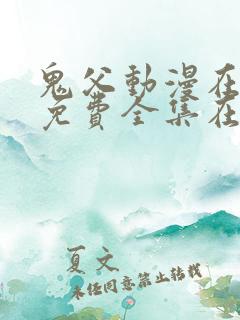 鬼父動漫在
免費全集在
夏文
未经同意禁止转载